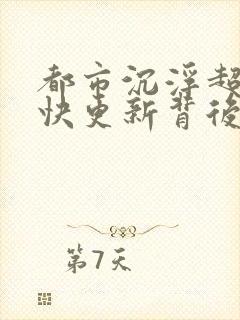 都市沉浮超
快更新背後
第7天